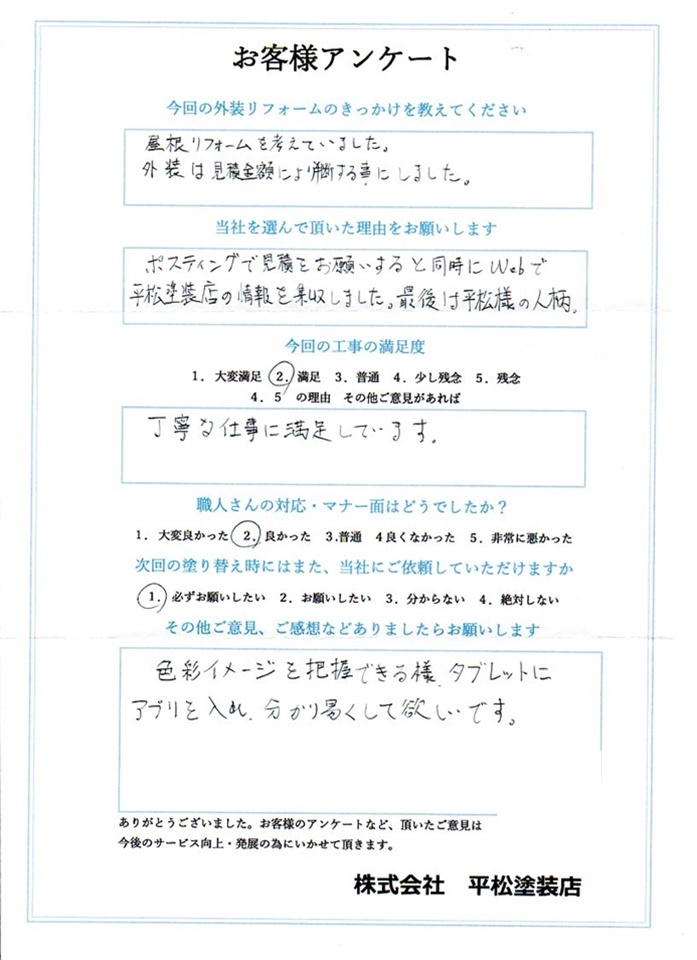 お客様アンケート
今回の外装リフォームのきっかけを教えてください
屋根リフォームを考えていました。
外装は見積金額により判断する事にしました。
当社を選んで頂いた理由をお願いします
ポスティングで見積をお願いすると同時にWebで
平松塗装店の情報を集収しました。最後は平松様の人柄。
今回の工事の満足度
1. 大変満足 2. 満足 3. 普通 4. 少し残念 5. 残念
4. 5 の理由 その他ご意見があれば
丁寧な仕事に満足しています。
職人さんの対応・マナー面はどうでしたか？
1. 大変良かった 2. 良かった 3.普通 4良くなかった 5. 非常に悪かった
次回の塗り替え時にはまた、当社にご依頼していただけますか
1. 必ずお願いしたい 2. お願いしたい 3. 分からない 4. 絶対しない
その他ご意見、ご感想などありましたらお願いします
色彩イメージを把握できる様、タブレットに
アプリを入れ、分かり易くして欲しいです。
ありがとうございました。お客様のアンケートなど、頂いたご意見は
今後のサービス向上・発展の為にいかせて頂きます。
株式会社 平松塗装店